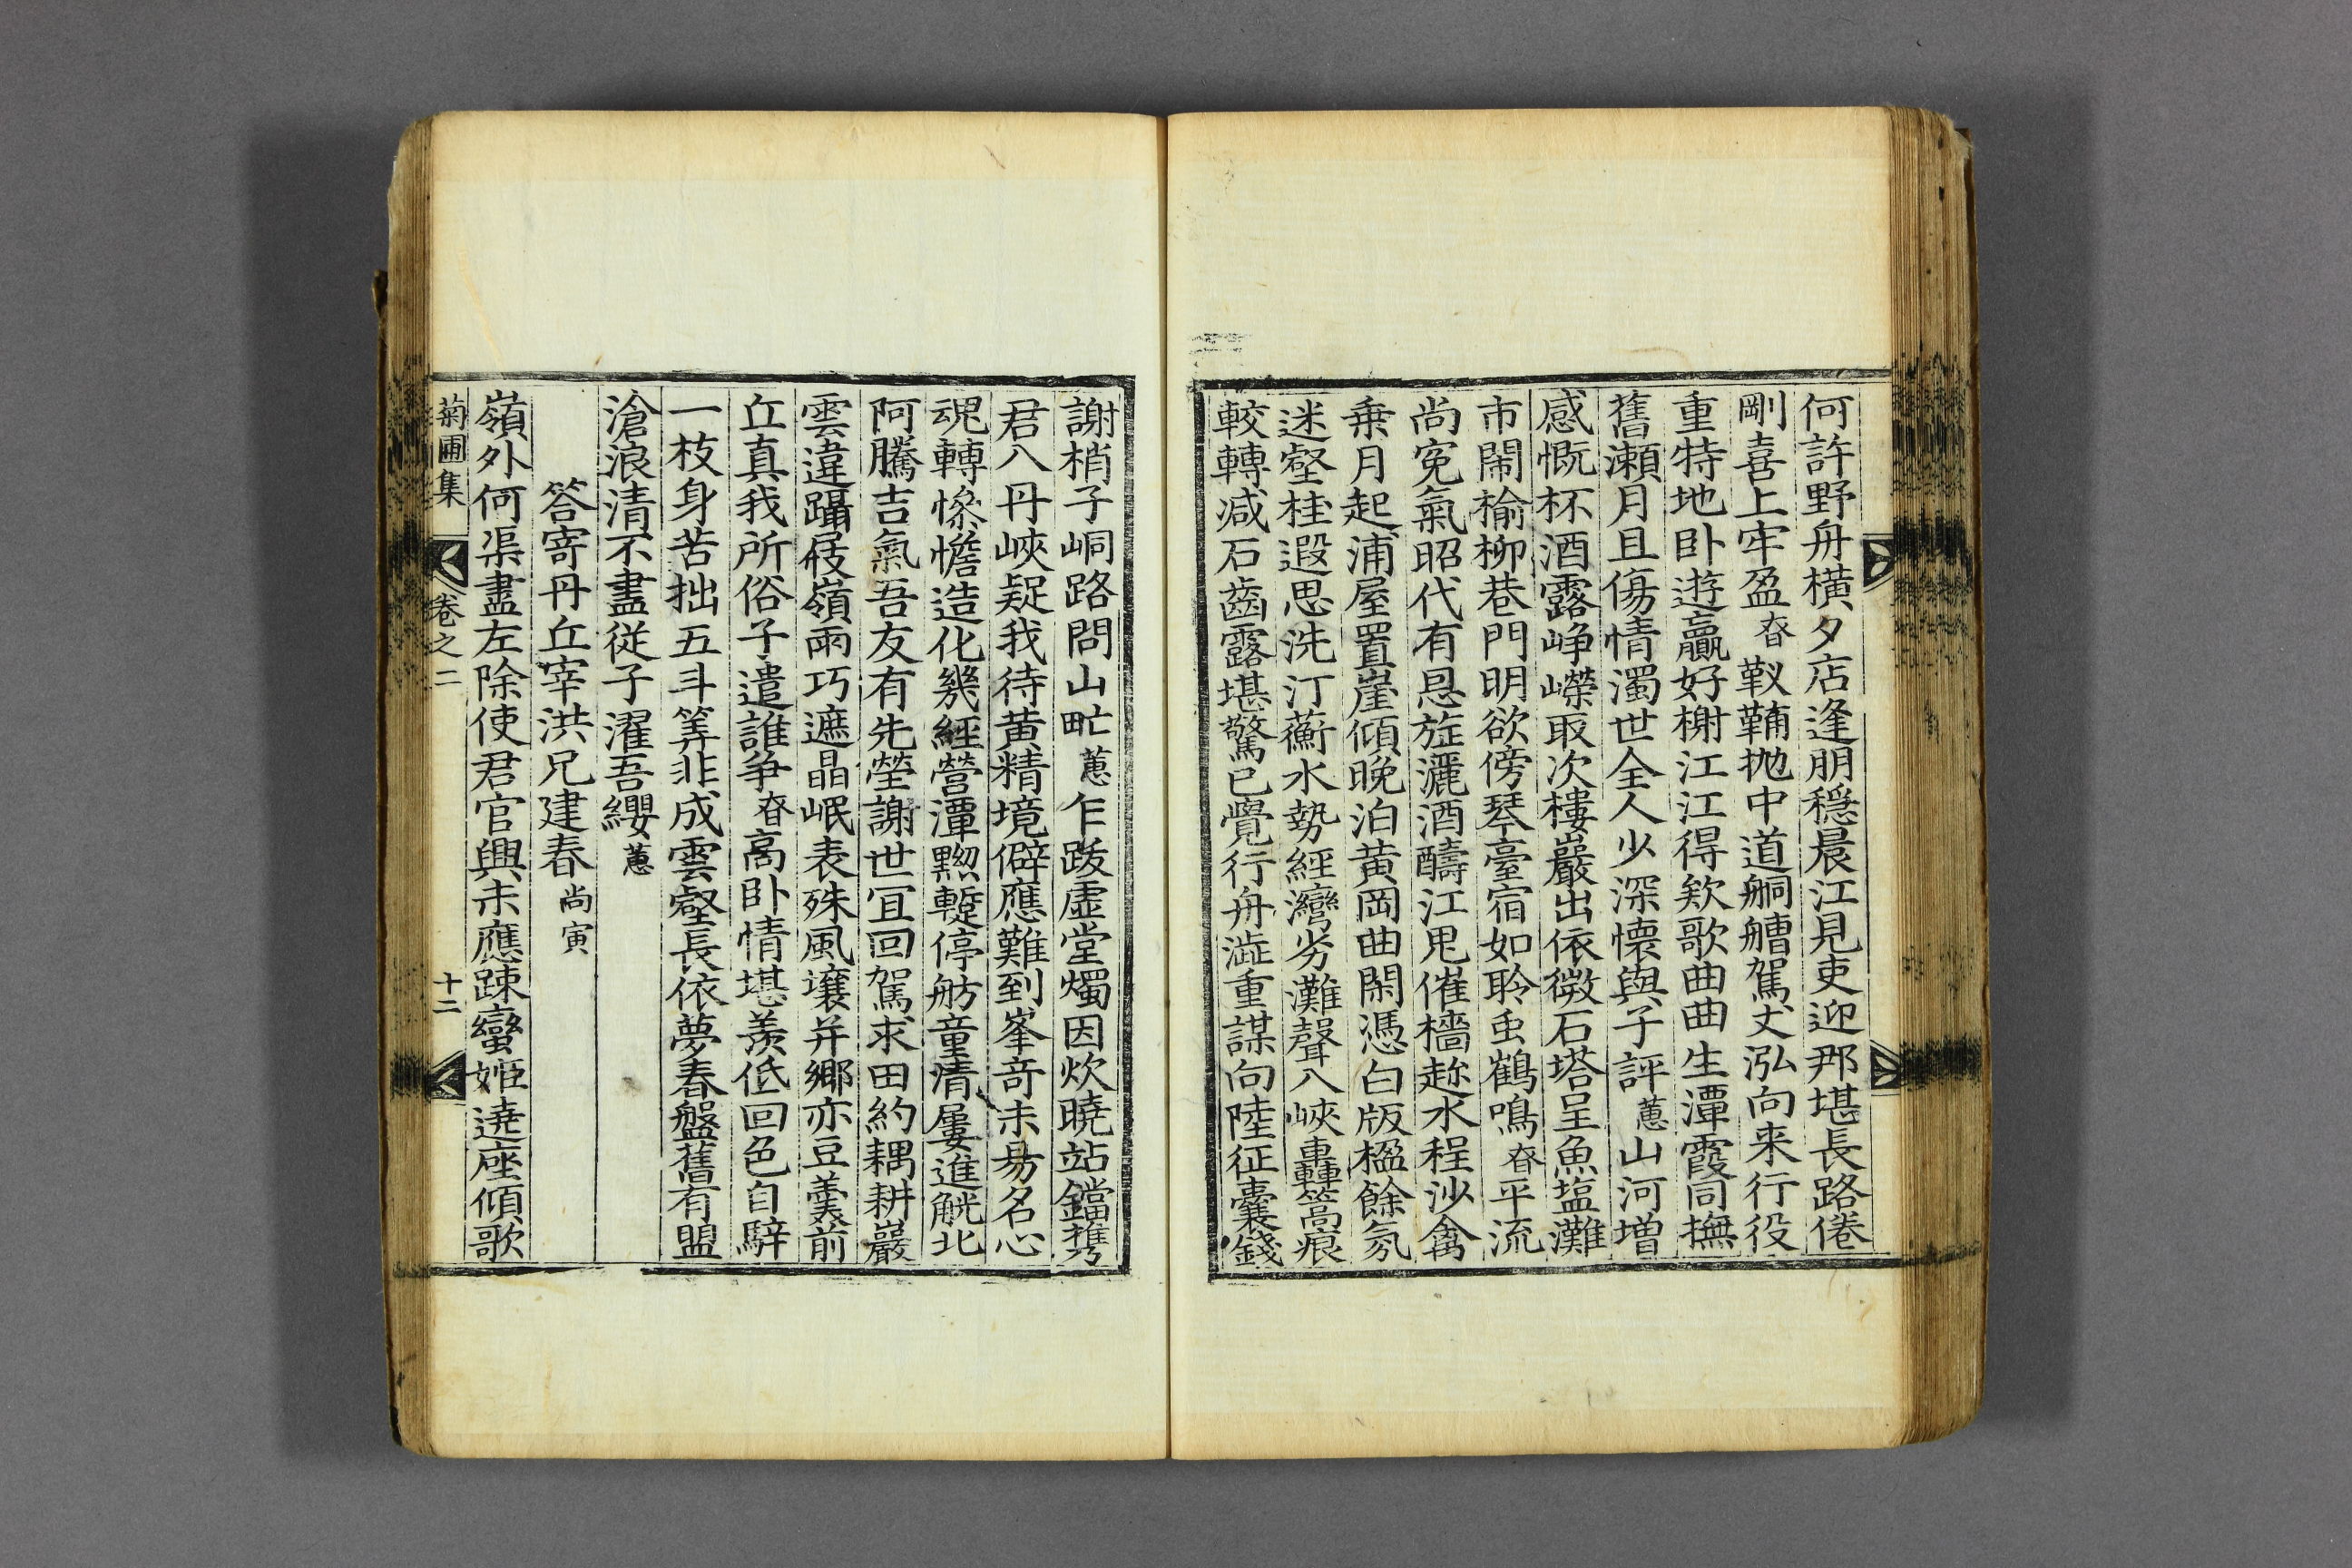 何許野舟橫夕店逢朋穩晨江見吏迎那堪長路倦
剛喜上牢盈春靫鞴抛中道舸艚駕丈泓向来行役
重特地卧遊贏好榭江江得欵歌曲曲生潭霞同撫
舊瀬月且傷情濁世全人少深懷與子評蕙山河增
感慨杯酒露崢嶸取次樓巖出依微石塔呈魚塩灘
市鬧榆柳巷門明欲傍琴臺宿如聆玉鶴鳴春平流
尚寃氣昭代有恩旌灑酒醻江鬼催檣趂水程沙禽
乗月起浦屋置崖傾晚泊黃岡曲閑憑白版楹餘氛
迷壑桂遐思洗汀蘅水勢經灣劣灘聲八峽轟篙痕
較轉减石齒露堪驚已覺行舟澁重謀向陸征囊錢
謝梢子峒路問山甿蕙乍跋虛堂燭因炊曉站鐺携
君八丹峽疑我待黃精境僻應難到峯竒未易名心
魂轉慘憺造化幾經營潭黝蹔停舫童情屢進觥北
阿騰吉氣吾友有先塋謝世冝回駕求田約耦耕巖
雲違躡屐嶺雨巧遮晶岷表殊風壤并鄉亦豆羹前
丘真我所俗子遣誰爭春高卧情堪羡低回色自騂
一枝身苦拙五斗筭非成雲壑長依夢春盤舊有盟
滄浪清不盡從子濯吾纓蕙
答寄丹丘宰洪兄建春尚寅
嶺外何渠盡左除使君官興未應踈蠻姬遶座傾歌
菊圃集 卷之二 十二